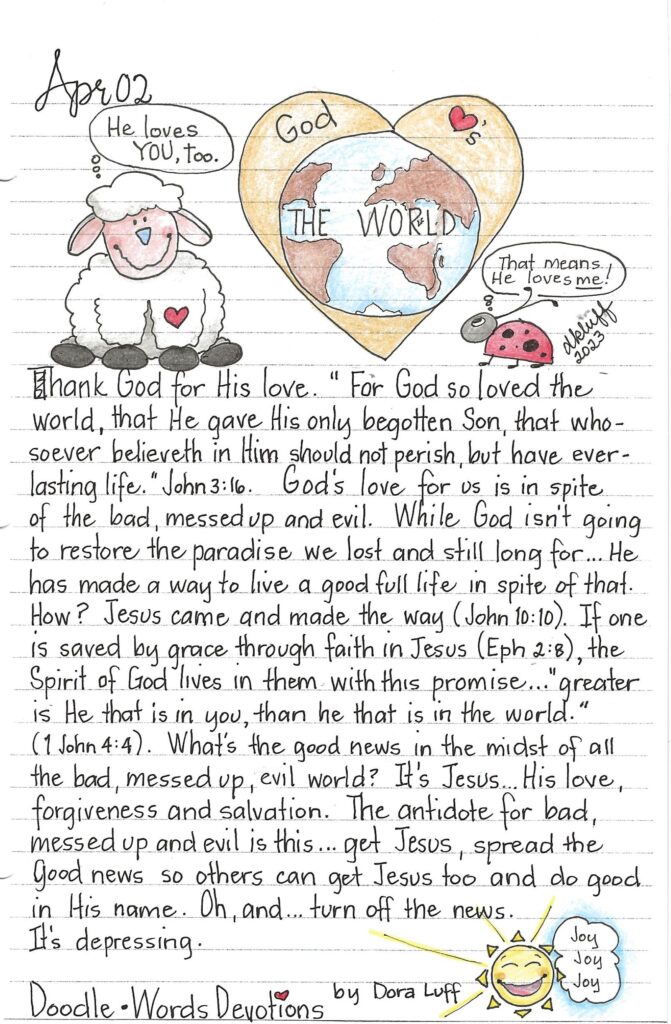 Apr 02
He loves
YOU, too.
God ♥'s
THE WORLD
That means
He loves me!
dkluff
2023
Thank God for His love. " For God so loved the
world, that He gave His only begotten Son, that who-
soever believeth in Him should not perish, but have ever-
lasting life." John 3:16. God's love for us is in spite
of the bad, messed up and evil. While God isn't going
to restore the paradise we lost and still long for... He
has made a way to live a good full life in spite of that.
How? Jesus came and made the way (John 10:10). If one
is saved by grace through faith in Jesus (Eph 2:8), the
Spirit of God lives in them with this promise..."greater
is He that is in you, than he that is in the world."
(1 John 4:4). What's the good news in the midst of all
the bad, messed up, evil world? It's Jesus... His love,
forgiveness and salvation. The antidote for bad,
messed up and evil is this... get Jesus, spread the
good news so others can get Jesus too and do good
in His name. Oh, and... turn off the news.
It's depressing.
Joy
Joy
Joy
Doodle • Words Devotions by Dora Luff